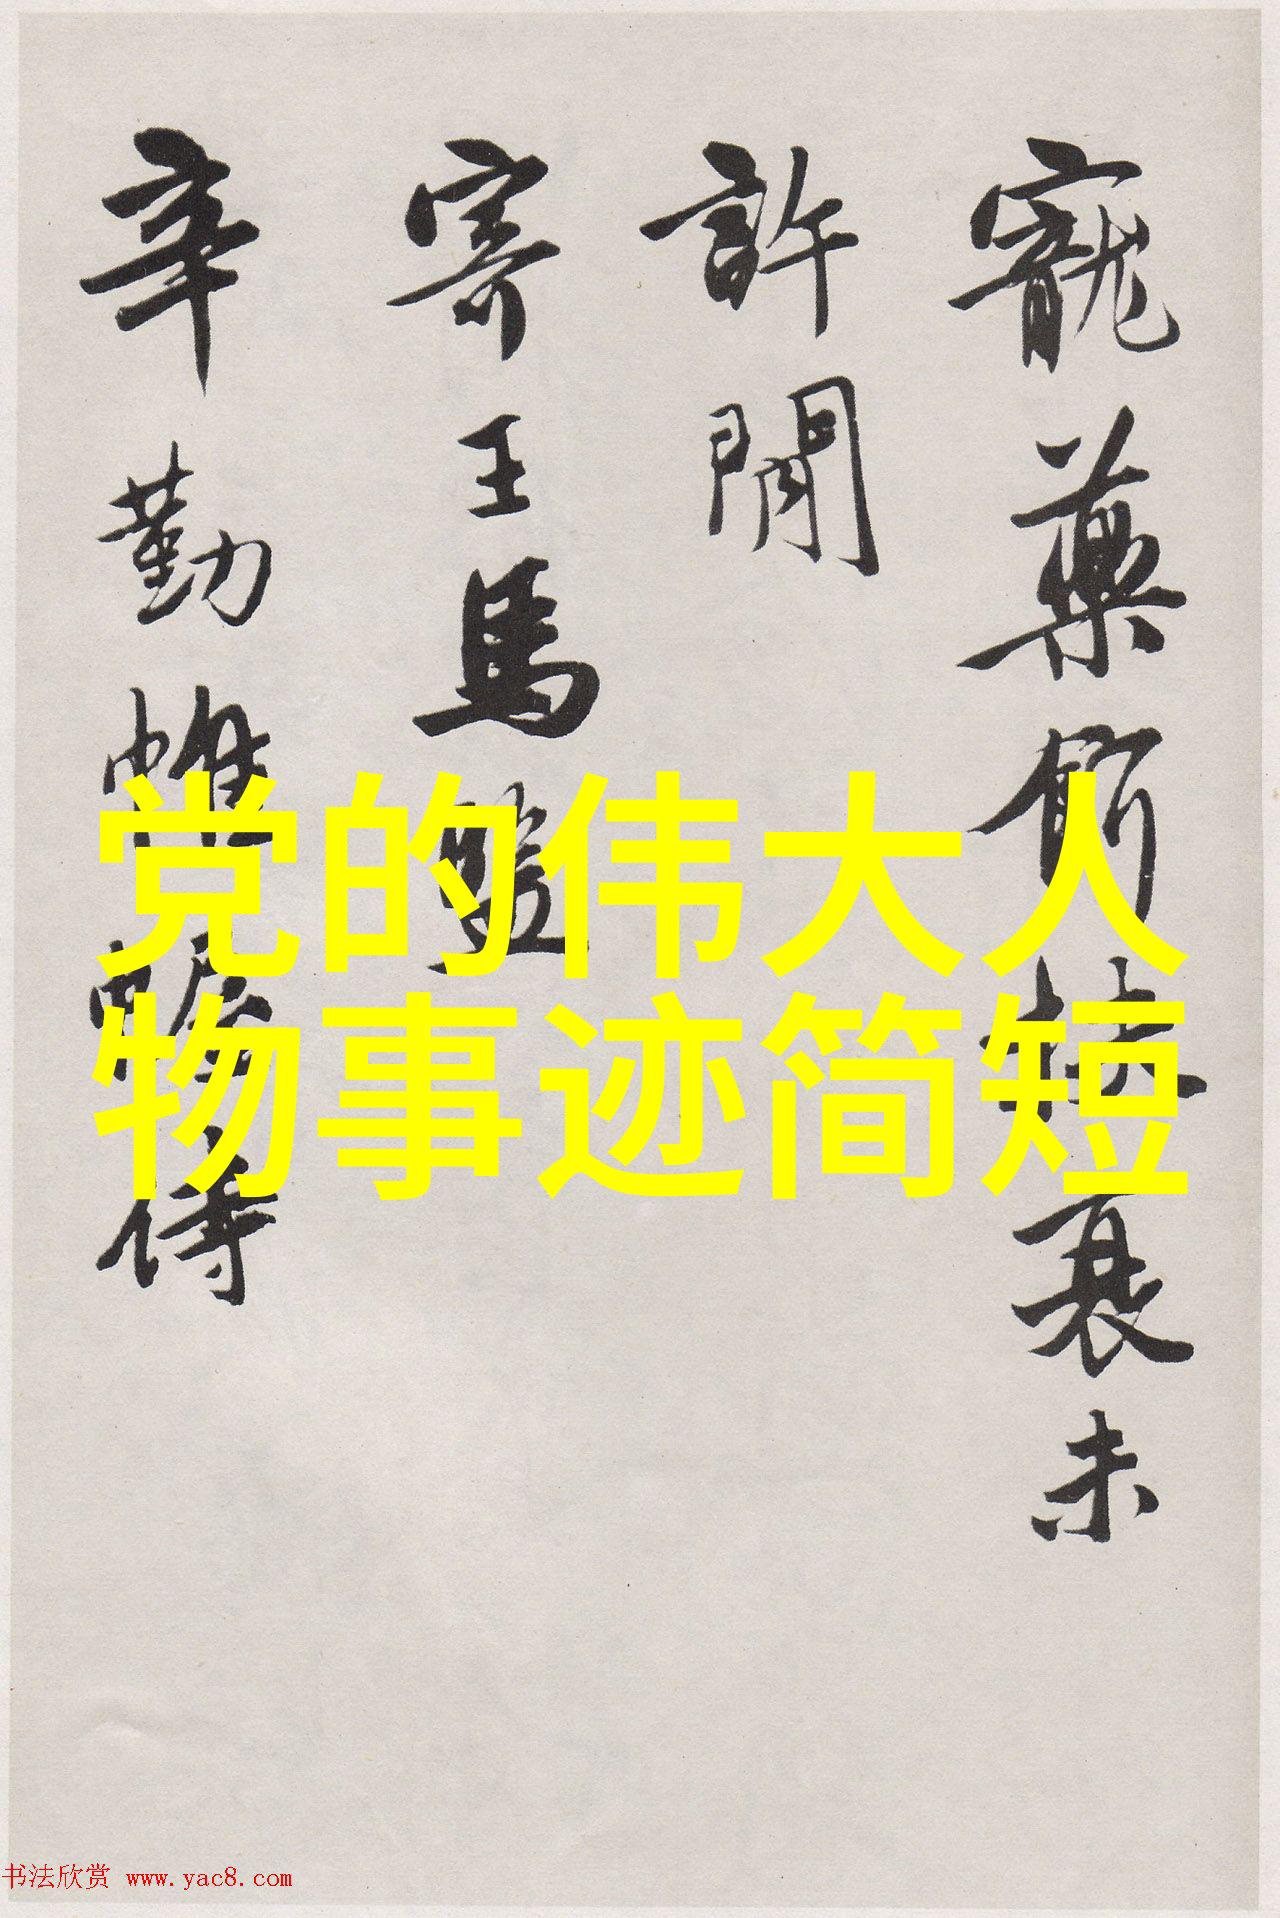 寵藥餌扶衰未
許閒
寄王馬監
辛勤帷幄侍
党的伟大人
物事迹简短
书法欣赏 www.yac8.com